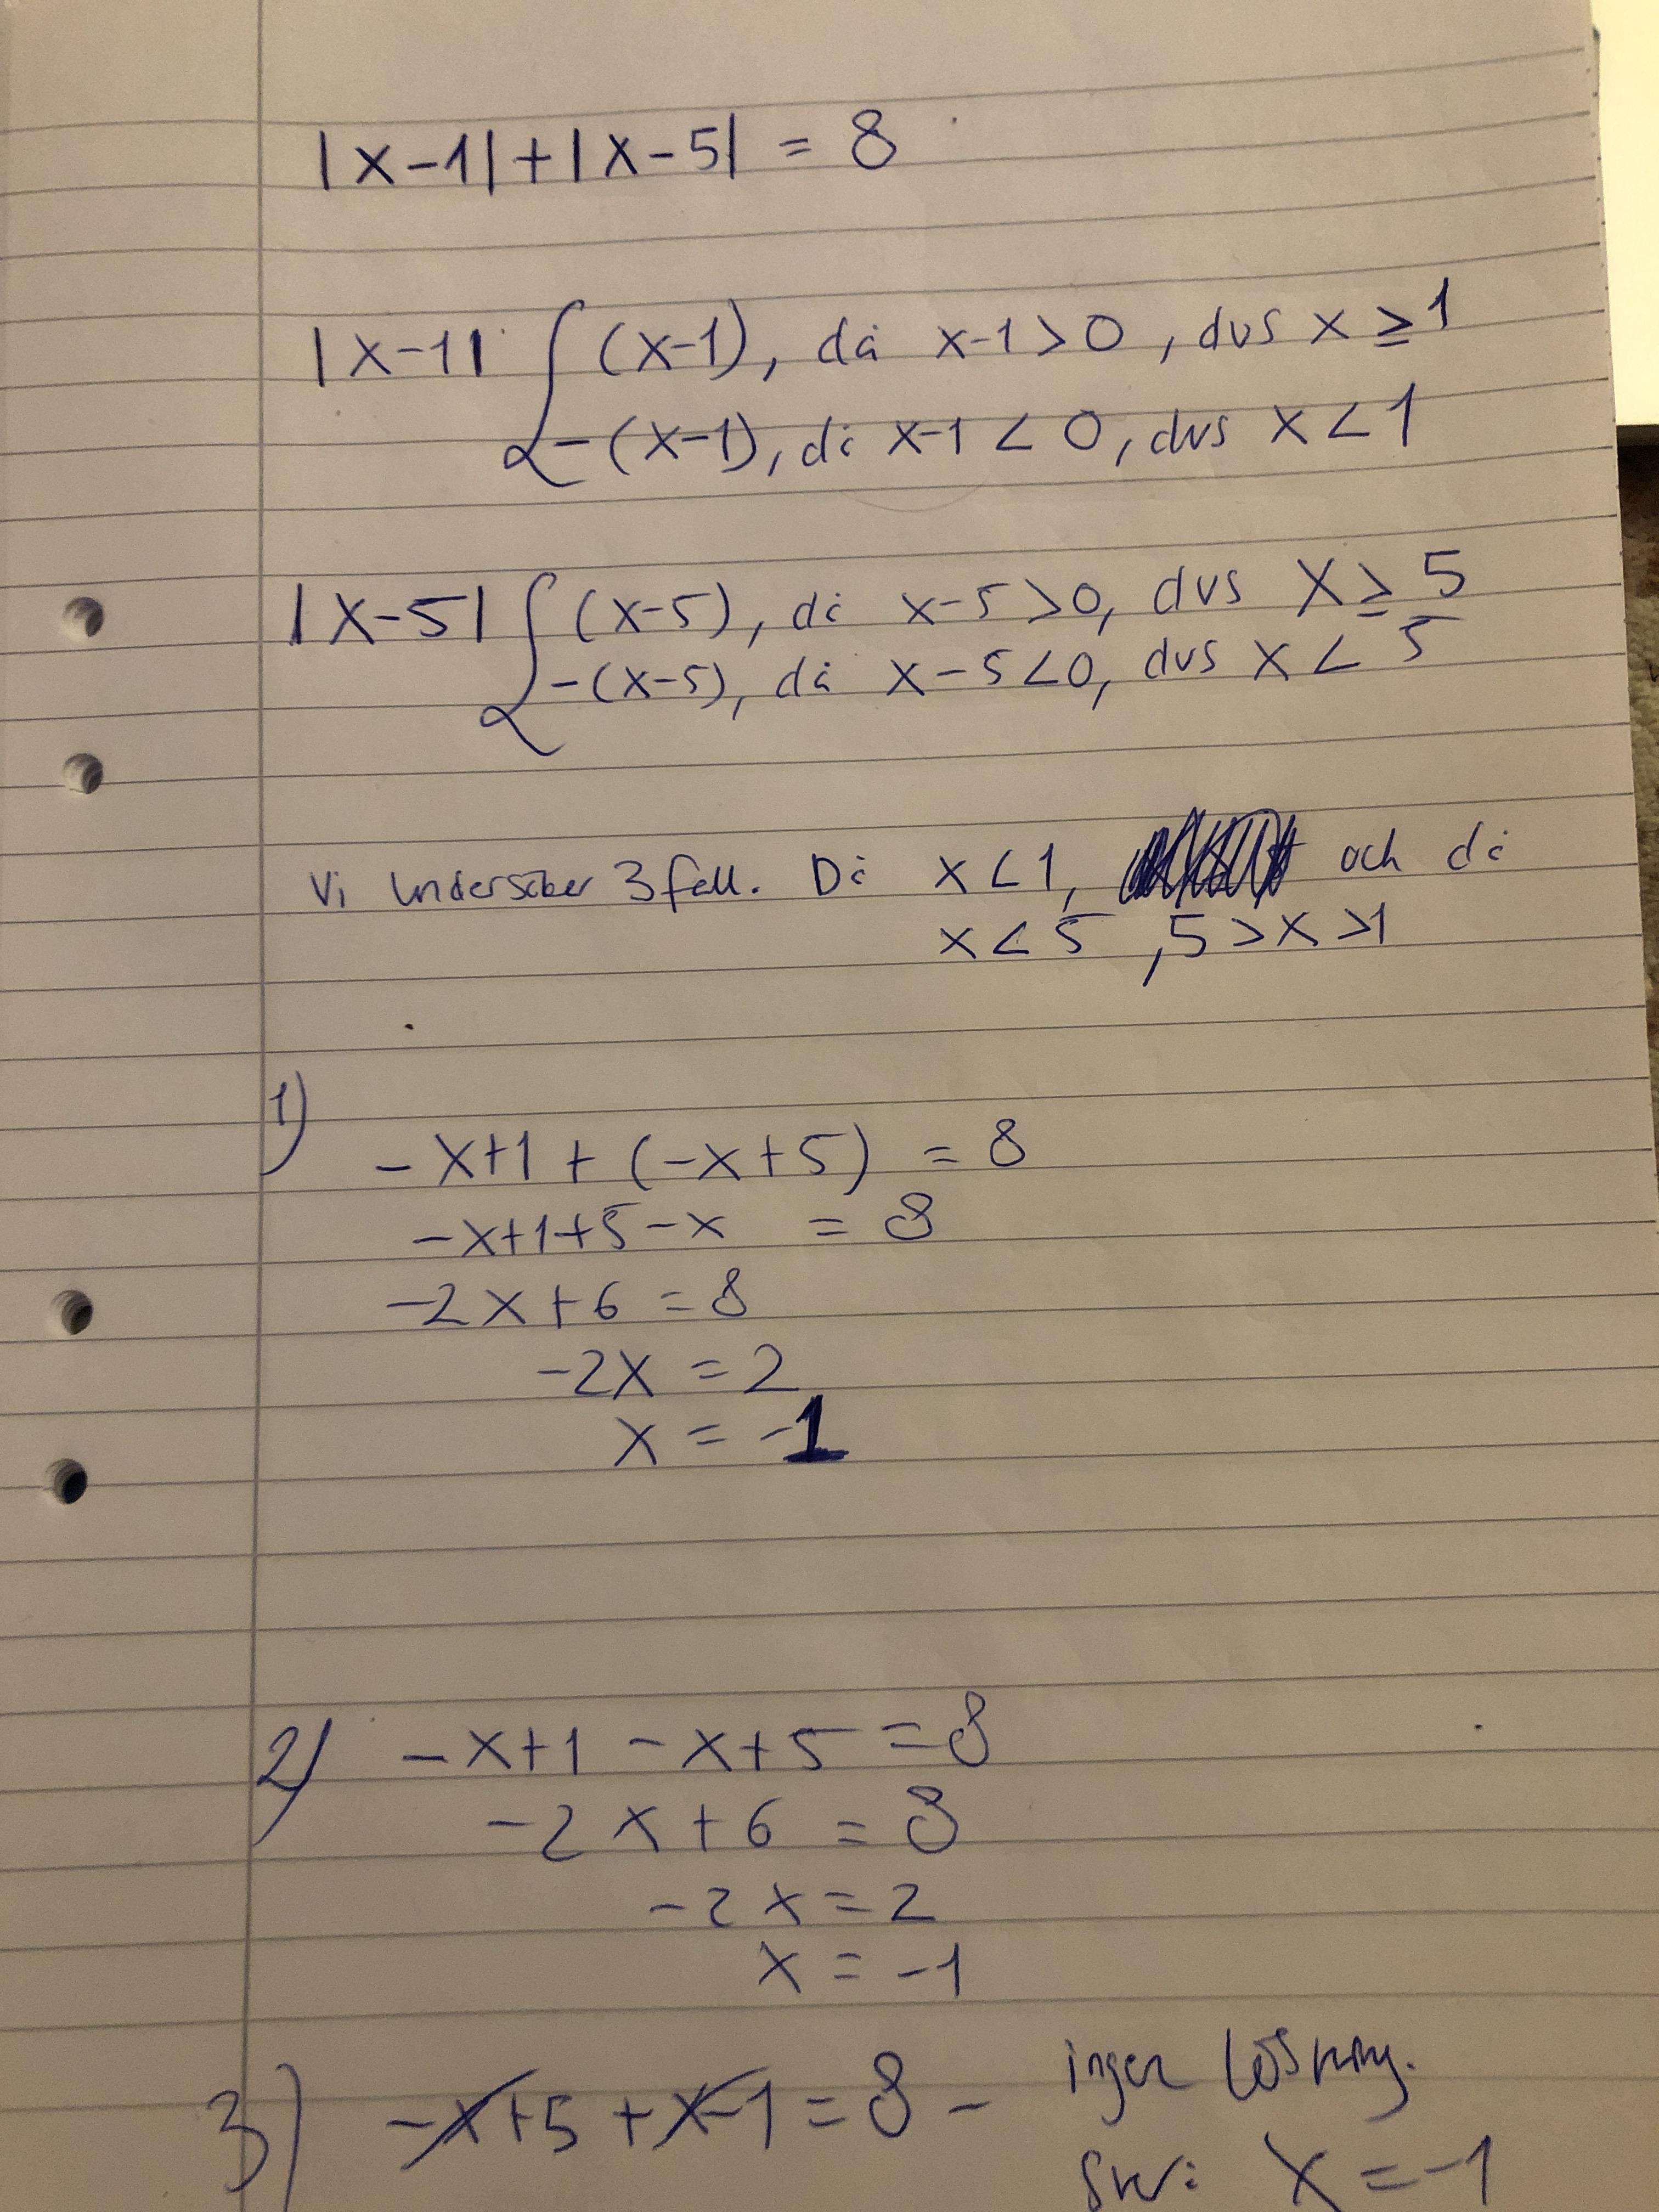 |x-1|+|x-5| = 8
|x-1| { (x-1), då x-1>0, dvs x ≥ 1
-(x-1), då x-1<0, dvs x<1
|x-5| { (x-5), då x-5>0, dvs x ≥ 5
-(x-5), då x-5<0, dvs x < 5
Vi undersöker 3 fall. Då x<1, och då
x<5, 5>x>1
1) -x+1+(-x+5) = 8
-x+1+5-x = 8
-2x+6=8
-2x=2
x=-1
2) -x+1-x+5=8
-2x+6=8
-2x=2
x=-1
3) -x+5+x-1=8 - ingen lösning.
Svar: x=-1